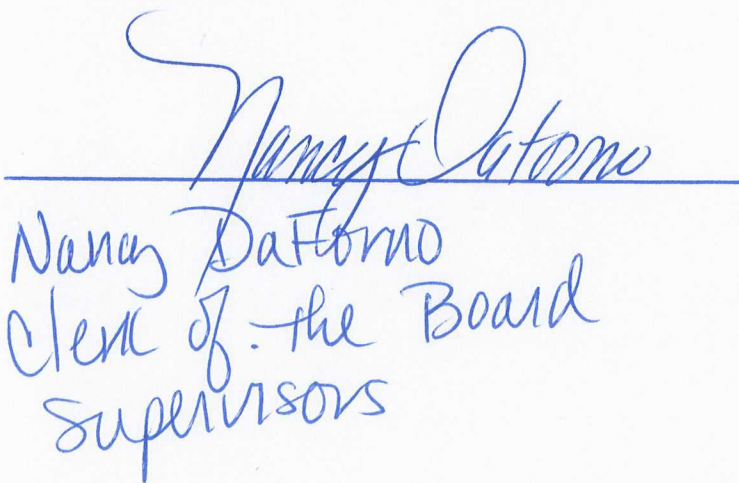 Nancy DaForno
Nancy DaForno
Clerk of the Board
Supervisors